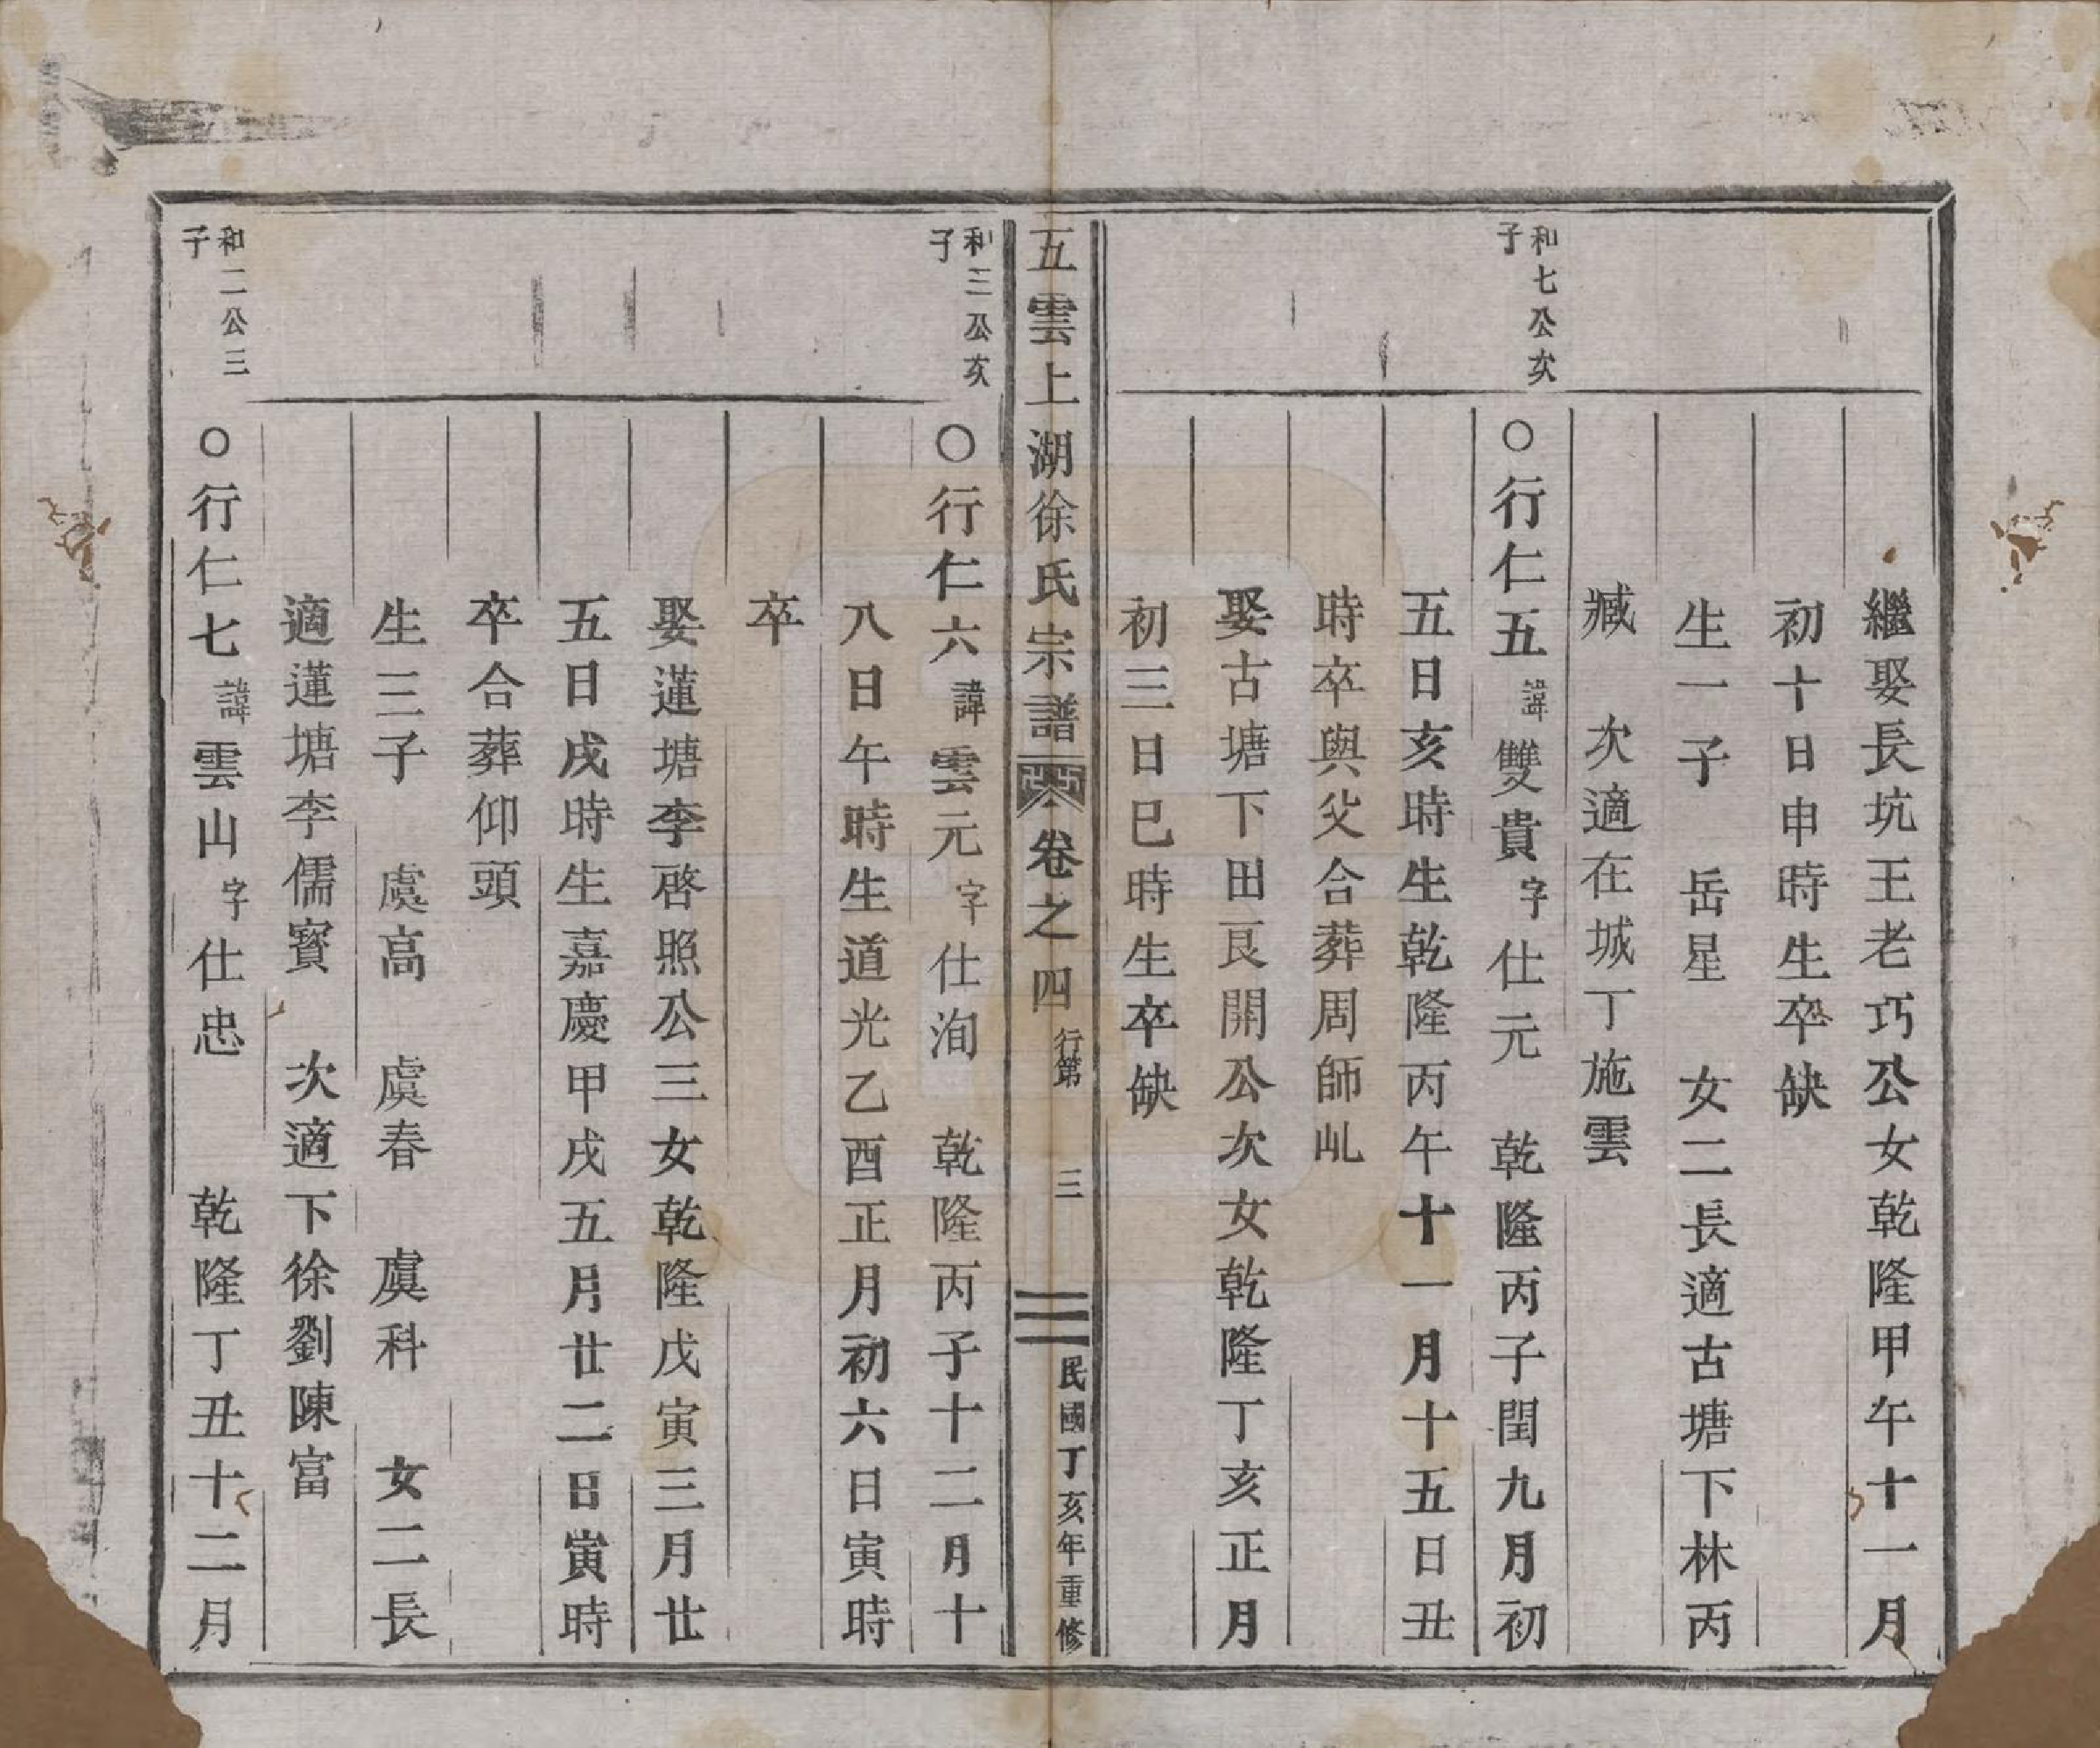 繼娶長坑王老巧公女乾隆甲午十一月
初十日申時生卒缺
生一子　岳星　女二長適古塘下林丙
臧　次適在城丁施雲
和七公次
子
○行仁五諱雙貴字仕元　乾隆丙子閏九月初
五日亥時生乾隆丙午十一月十五日丑
時卒與父合葬周師乢
娶古塘下田艮開公次女乾隆丁亥正月
初三日巳時生卒缺
五雲上湖徐氏宗譜　卷之四　行第　三　民國丁亥年重修
和三公次
子
○行仁六諱雲元字仕洵　乾隆丙子十二月十
八日午時生道光乙酉正月初六日寅時
卒
娶蓮塘李啓照公三女乾隆戊寅三月廿
五日戌時生嘉慶甲戌五月廿二日寅時
卒合葬仰頭
生三子　虞高　虞春　虞科　女二長
適蓮塘李儒寶　次適下徐劉陳富
和二公三
子
○行仁七諱雲山字仕忠　乾隆丁丑十二月